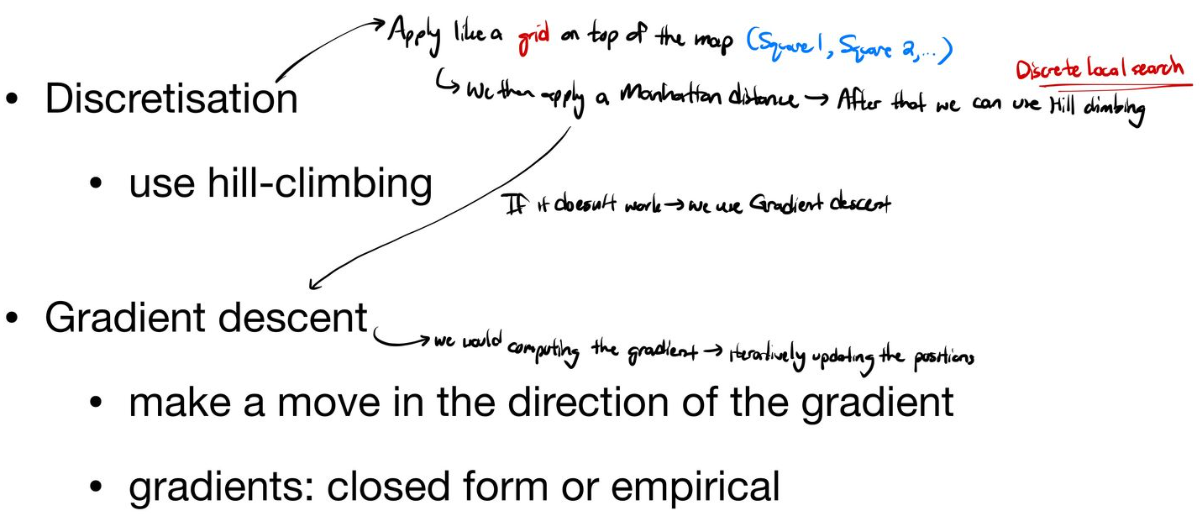 Apply like a grid on top of the map (Square 1, Square 2,...)
Discrete local search
• Discretisation
↳ We then apply a Manhattan distance → After that we can use Hill climbing
• use hill-climbing
If it doesn't work → we use Gradient descent
• Gradient descent
→ we would computing the gradient → iteratively updating the positions
• make a move in the direction of the gradient
• gradients: closed form or empirical